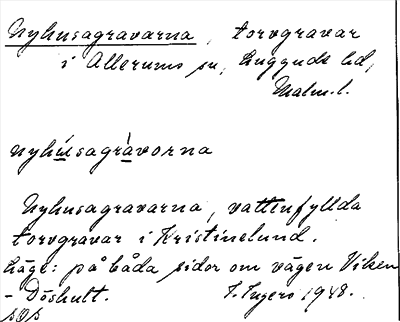 Nyhusagravarna, torvgravar
i Allerums sn, Luggude hd,
Malm. l.
nyhúsagràvorna
Nyhusagravarna, vattenfyllda
torvgravar i Kristinelund.
Läge: på båda sidor om vägen Viken
- Döshult. I. Ingers 1948.